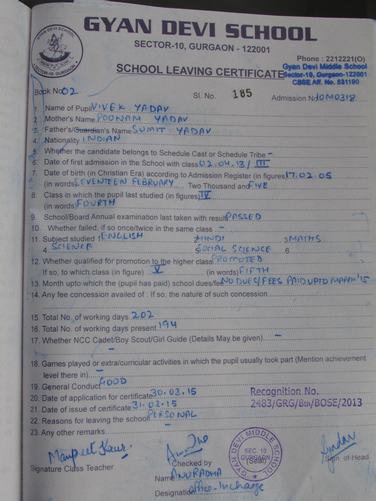 GYAN DEVI SCHOOL
SECTOR-10, GURGAON - 122001
Phone : 2212221(O)
Gyan Devi Middle School
Sector-10, Gurgaon-122001
CBSE Aff. No. 531190
SCHOOL LEAVING CERTIFICATE
Book No. 02 Sl. No. 185 Admission No. 10M0318
1. Name of Pupil VIVEK YADAV
2. Mother's Name POONAM YADAV
3. Father's/Guardian's Name SUMIT YADAV
4. Nationality INDIAN
5. Whether the candidate belongs to Schedule Cast or Schedule Tribe -
6. Date of first admission in the School with class 02.04.13/ III
7. Date of birth (in Christian Era) according to Admission Register (in figures) 17.02.05
(in words) SEVENTEEN FEBRUARY Two Thousand and FIVE
8. Class in which the pupil last studied (in figures) IV
(in words) FOURTH
9. School/Board Annual examination last taken with result PASSED
10. Whether failed, if so once/twice in the same class -
11. Subject studied 1 ENGLISH 2 HINDI 3 MATHS
4 SCIENCE 5 SOCIAL SCIENCE 6
12. Whether qualified for promotion to the higher class PROMOTED
If so, to which class (in figure) V (in words) FIFTH
13. Month upto which the (pupil has paid) school dues/fee NO DUES/FEES PAID UPTO MARCH'15
14. Any fee concession availed of : If so, the nature of such concession
15. Total No. of working days 202
16. Total No. of working days present 194
17. Whether NCC Cadet/Boy Scout/Girl Guide (Details May be given) -
18. Games played or extra/curricular activities in which the pupil usually took part (Mention achievement
level there in) -
19. General Conduct GOOD
20. Date of application for certificate 30.03.15
21. Date of issue of certificate 31.03.15
22. Reasons for leaving the school PERSONAL
23. Any other remarks -
Recognition No.
2483/GRG/8th/BOSE/2013
Manpreet Kaur
Signature Class Teacher
Checked by
Name ANURADHA
Designation Office-Incharge
GYAN DEVI MIDDLE SCHOOL
SEC. 10
GURGAON
(Seal)
Sign. of Head